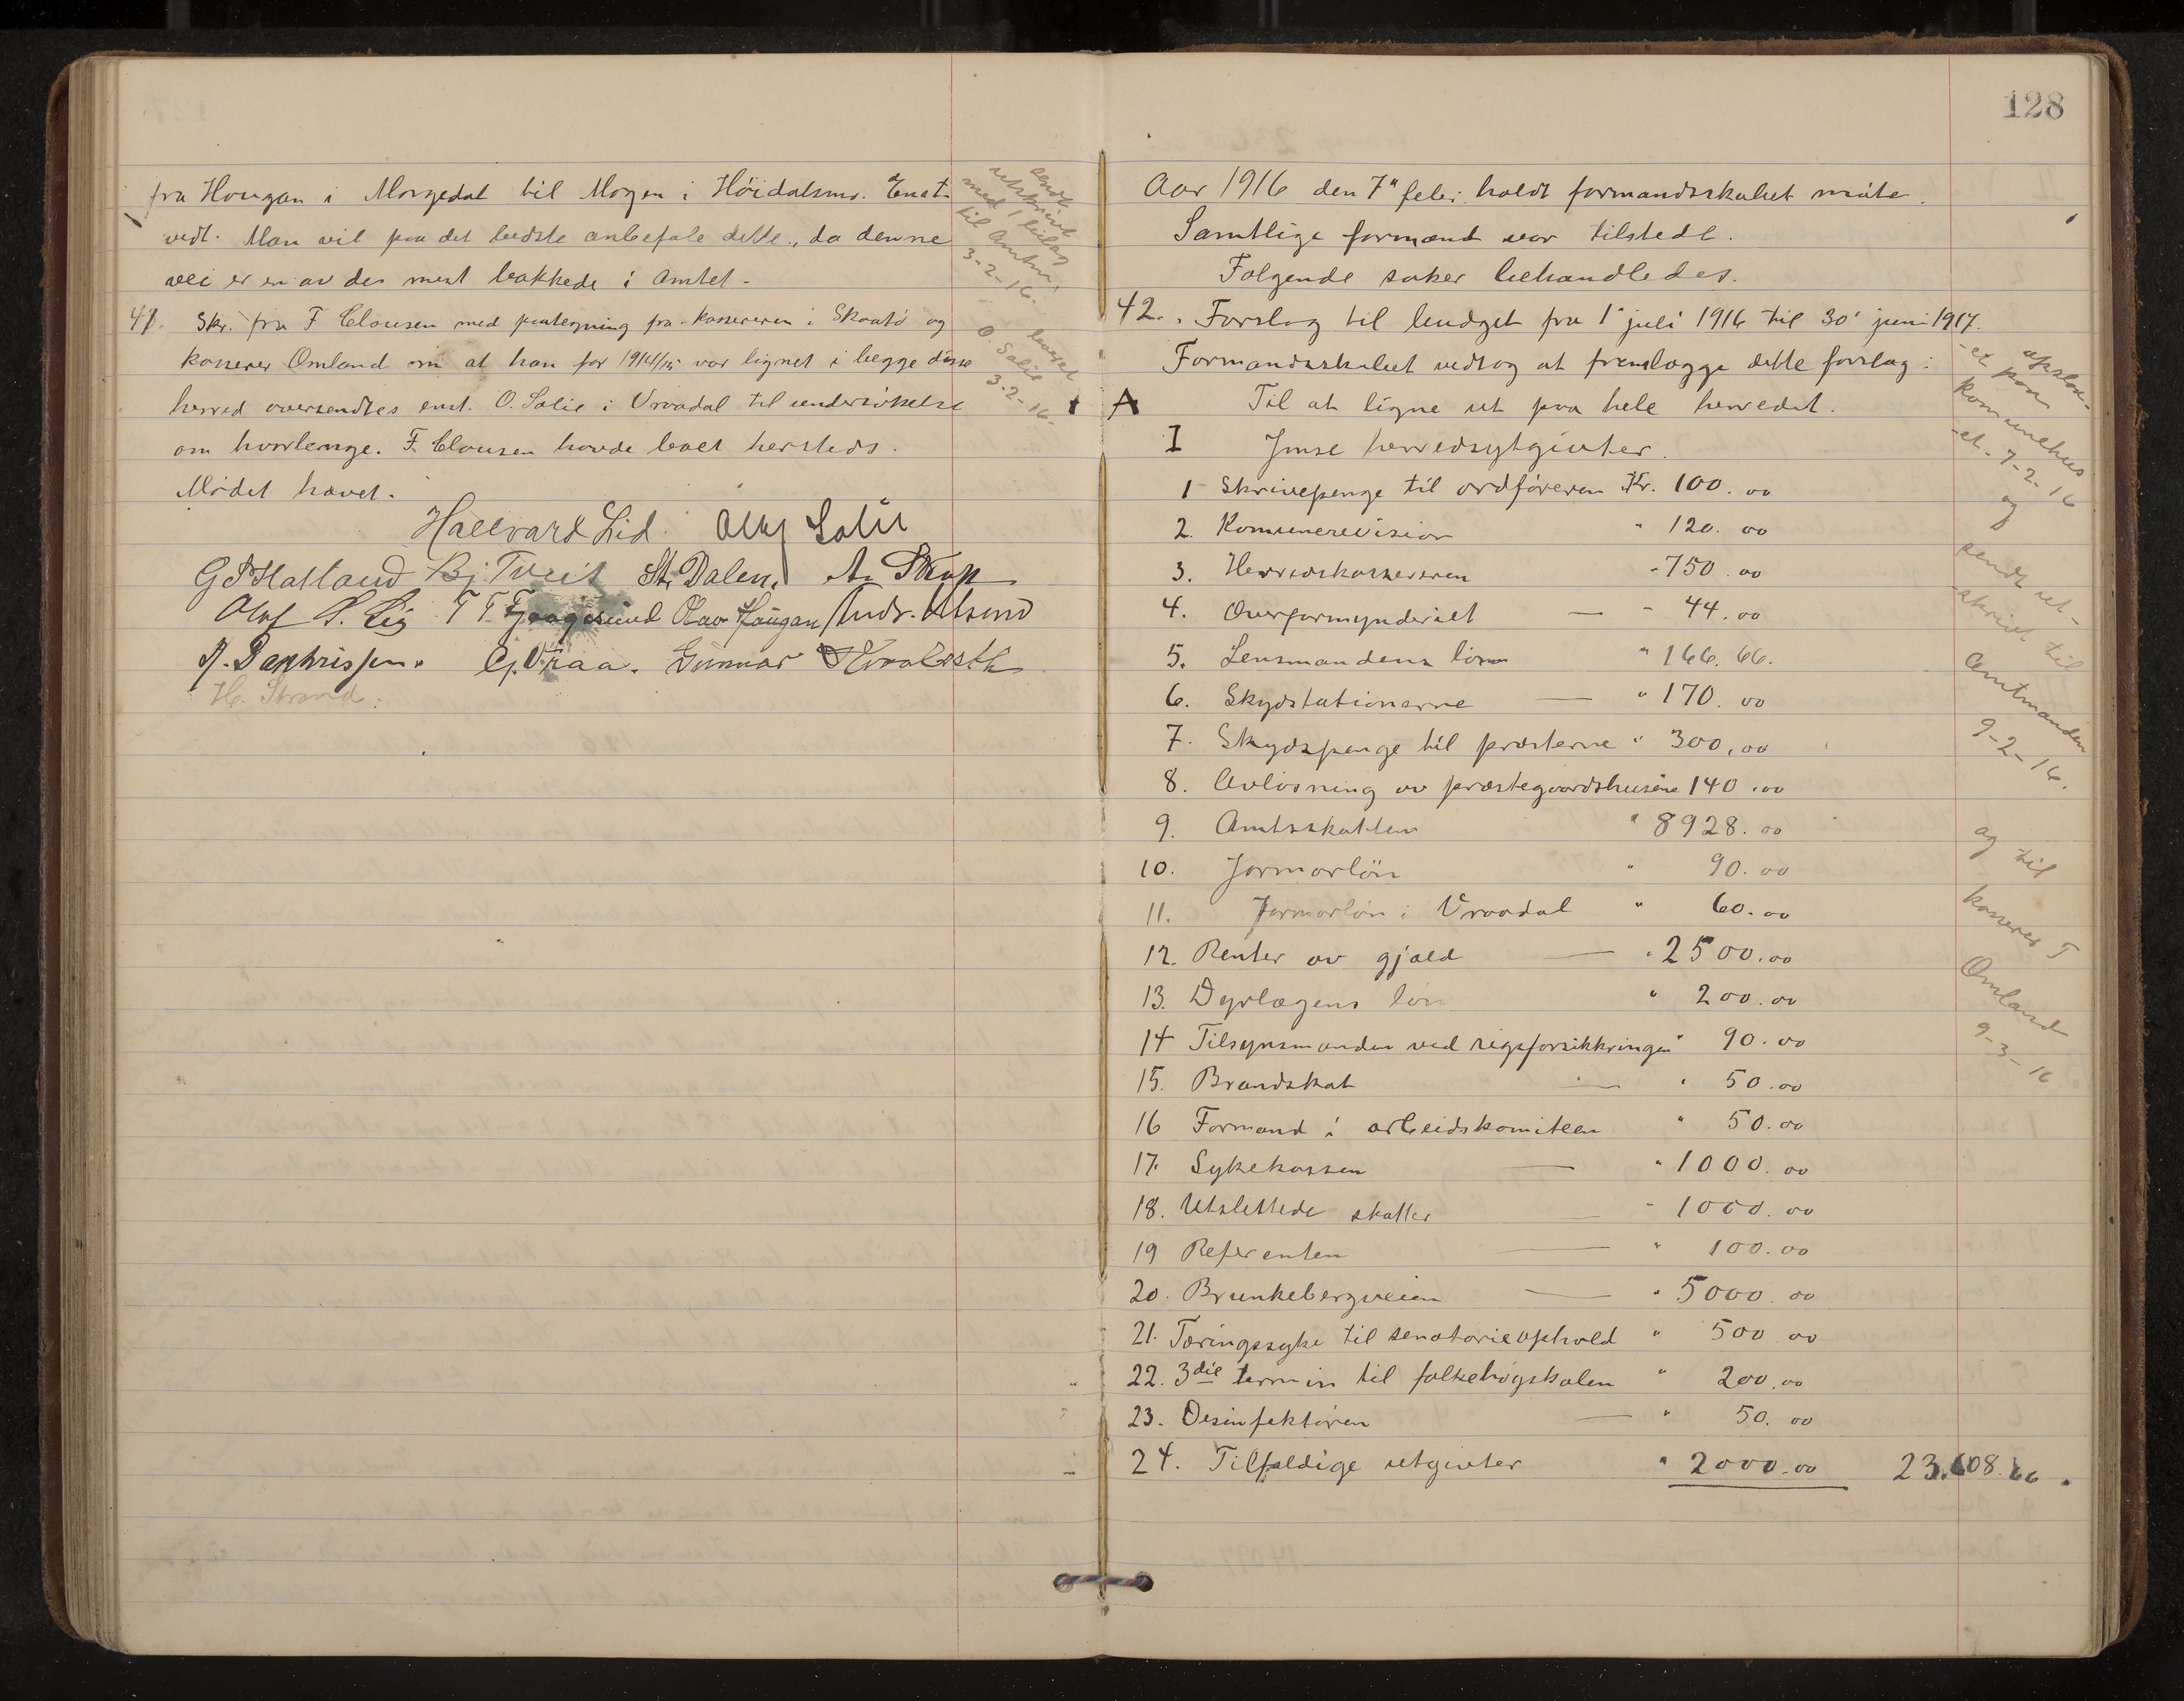 fra Hougan i Morgedal til Mogen i Höidalsmo. Enst.
vedt. Man vil paa det bedste anbefale dette, da denne
vei er en av des mest bakkede i Amtet.
41. Skr. fra F Clausen med paategning fra kassereren i Skaatö og
kasserer Omland om at han for 1914/15 var lignet i begge disse
herred oversendtes enst. O. Salie i Vraadal til undersökelse
om hvorlenge F. Clausen havde boet hersteds.
Mödet hævet.
Hallvard Lid. Olaf Salie
Bj. Tveit St. Dalen.
Olaf S. Lid T T Fjaagesund Olav Haugan
G. Vraa. Gunnar
H. Strand.
sendt
utskrivt
med 1 bilag
til Amtm.
3-2-16.
leveret
O. Salie
3-2-16.
128
Aar 1916 den 7" feb: holdt formandsskabet möte.
Samtlige formænd var tilstede.
Følgende saker behandledes.
42. Forslag til budget fra 1' juli 1916 til 30' juni 1917.
Formandsskabet vedtog at fremlægge dette forslag:
A Til at ligne ut paa hele herredet.
I Ymse herredsutgivter.
1 Skrivepenge til ordföreren Kr. 100.00
2. Komunerevision " 120.00
3. Herredskassereren " 750.00
4. Overformynderiet — " 44.00
5. Lensmandens lön " 166.66.
6. Skydstationerne — " 170.00
7. Skydspenge til præsterne " 300,00
8. Avlösning av præstegaardshusene 140.00
9. Amtsskatten " 8928.00
10. Jormorlön " 90.00
11. Jormorlön i Vraadal " 60.00
12. Renter av gjæld — " 2500.00
13. Dyrlægens lön " 200.00
14 Tilsynsmanden ved rigsforsikkringen " 90.00
15. Brandskat — " 50.00
16 Formand i arbeidskomiteen " 50.00
17. Sykekassen — " 1000.00
18. Utslettede skatter — " 1000.00
19 Referenten — " 100.00
20. Brunkebergveien — " 5000.00
21. Tæringssyke til senatorieophold " 500 00
22. 3die termin til folkehögskolen " 200.00
23. Desinfektören — " 50.00
24. Tilfældige utgivter " 2000.00 23.608.66.
opslaa-
-et paa
komunehus
-et. 7-2-16
og
sendt ut-
-skrivt til
Amtmanden
9-2-16.
og til
kasserer T
Omland
9-3-16